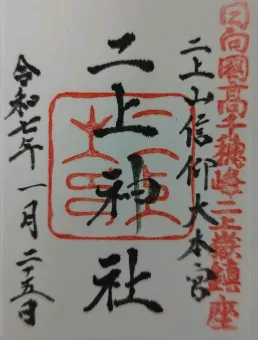 日向國高千穗峰二上嶽鎮座
二上山信仰大本宮
二上神社
令和七年一月二十五日